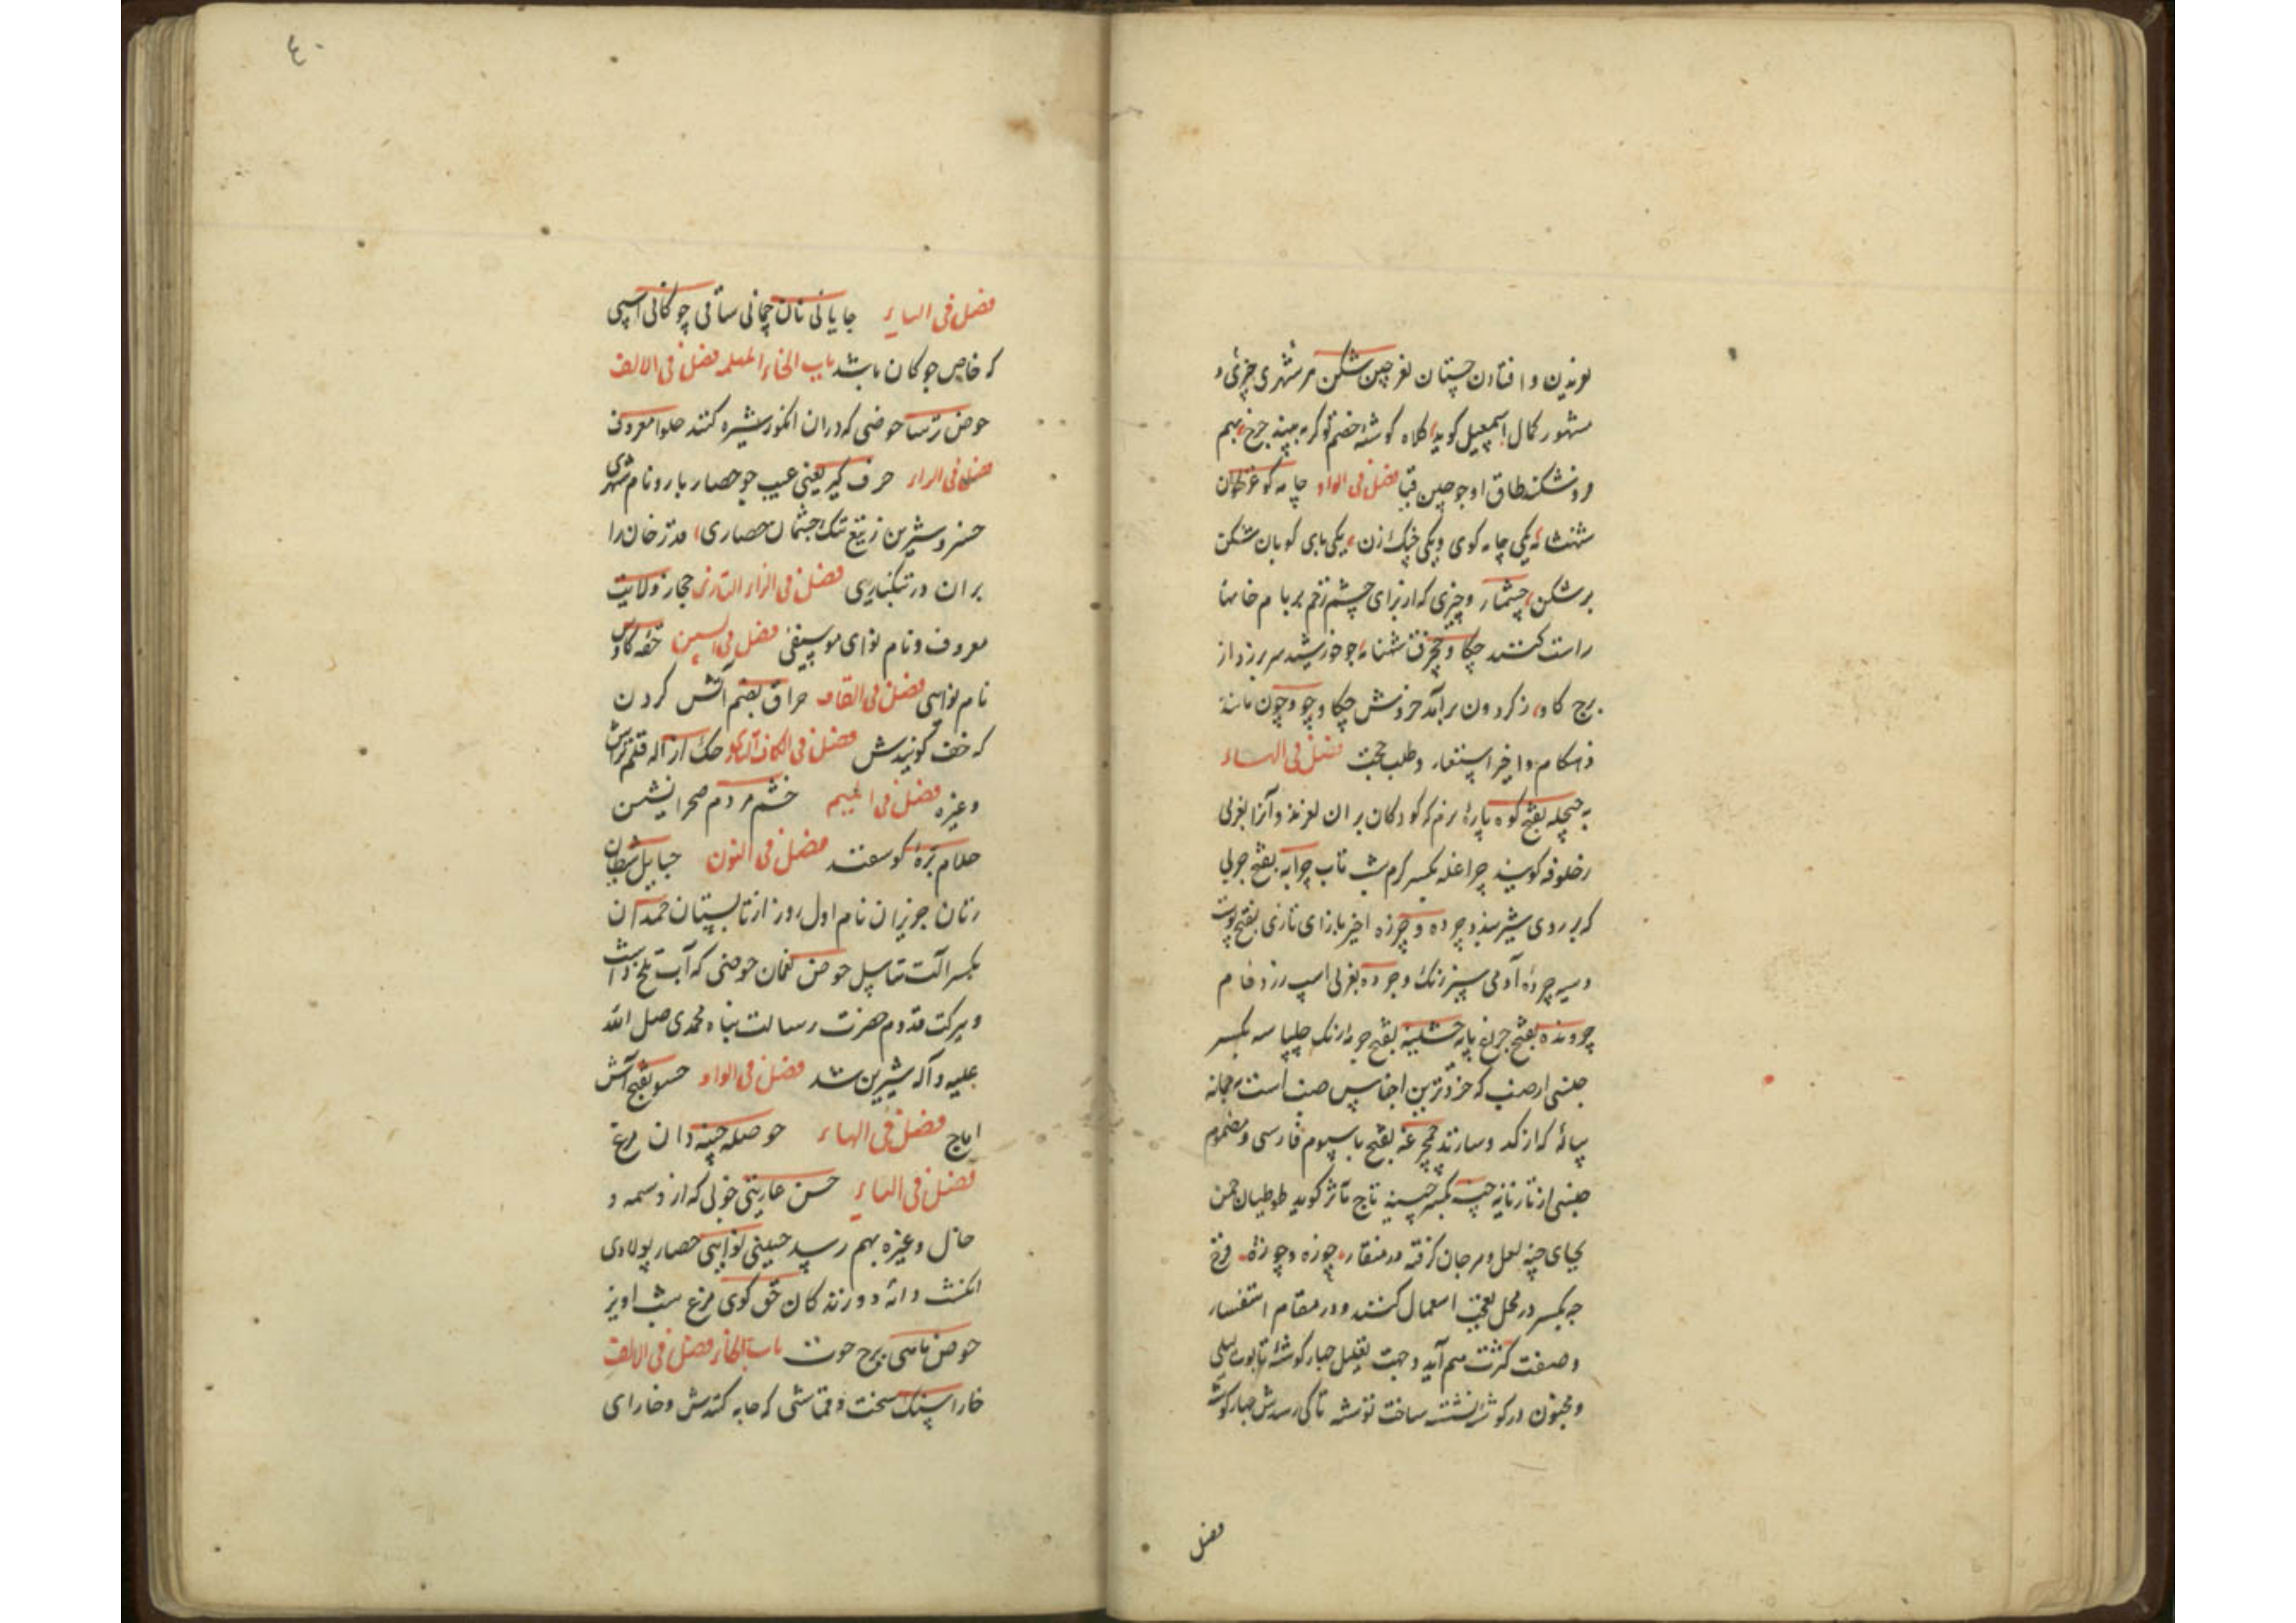 لغزیدن و افتادن چستان لغز چین شکن هر شهری چیزی و
مشهور کمال اسمعیل کوید کلاه کوشه خصم تو کر به بیند چرخ بهم
در شکند طاق او چو چین قبا فصل فی الواو چامه کو غزلخوان
شهنشانه یکی چامه کوی و یکی چنک زن یکی پای کوبان شکن
بر شکن چشمار و چیزی که از برای چشم زخم بر بام خانها
راست کنند چکاو چکرف شهنامه چو خورشید سر بر زد از
برج کاو ز کردون برآمد خروش چکاو چو و چون مانند
و هنکام و ایضا استفسار و طلب حجت فصل فی الهاء
چیچله بفتح کوه پارۀ نرم که کودکان بر ان لغزند و آنرا بعربی
زحلوفه کویند چراغله بکسر کرم شب تاب چرابه بفتح چربی
که بر روی شیر بندد چرده و چرزه اخیر با زای تازی بفتح پوست
و سیه چرده آدمی سبز رنک و چرده بعربی اسپ زرد فام
چرونده بفتح چراغ پایه چشینه بفتح چرمه رنک چلپاسه بکسر
جنسی از ضب که خردترین اجناس ضب است چمانه
پیاله که از کدو سازند چمچرغه بفتح با سیوم فارسی و مضموم
جنسی از تازیانه چینه بکسر چینه تاج مآثر کوید طوطیان چمن
بجای چینه لعل و مرجان کرفته در منقار چوزه و چوژه فرخ
چه بکسر در محل تعجب استعمال کنند و در مقام استفسار
و صفت کثرت هم آید و جهت تعلیل چهار کوشه تابوت لیلی
و مجنون در کوشه نشسته ساخت توشه تا کی رسدش چهار کوشه
فصل
٤٠
فصل فی الیاء چاپانی نان چمانی ساقی چوکانی اسپی
که خاص چوکان باشد باب الحاء المهمله فصل فی الالف
حوض ترسا حوضی که دران انکور شیره کنند حلوا معروف
فصل فی الراء حرف کیر یعنی عیب جو حصار بارو نام شهری
خسرو شیرین ز تیغ تنک چشمان حصاری قدر خان را
بران در تنکباری فصل فی الزاء التازی حجاز ولایت
معروف و نام نوای موسیقی فصل فی السین حقه کاوس
نام نوایی فصل فی القاف حراق بضم آتش کردن
که خف کویندش فصل فی الکاف التازی حک از آله قلم تراش
و غیره فصل فی المیم حشم مردم صحرا نشین
حلام برۀ کوسفند فصل فی النون حبایل شیطان
زنان حوزیران نام اول روز از تابستان حمدان
بکسر آلت تناسل حوض نعمان حوضی که آب تلخ داشت
و ببرکت قدوم حضرت رسالت پناه محمدی صلی الله
علیه و آله شیرین شد فصل فی الواو حسو بفتح آش
اماج فصل فی الهاء حوصله چینه دان مرغ
فصل فی الیاء حسن عاریتی خوبی که از وسمه و
خال و غیره بهم رسد حسینی نوایی حصار پولادی
انکشت دانه دوزندکان حق کوی مرغ شب اویز
حوض ماهی برج حوت باب الخاء فصل فی الالف
خارا سنک سخت و قماشی که جامه کنندش و خارای